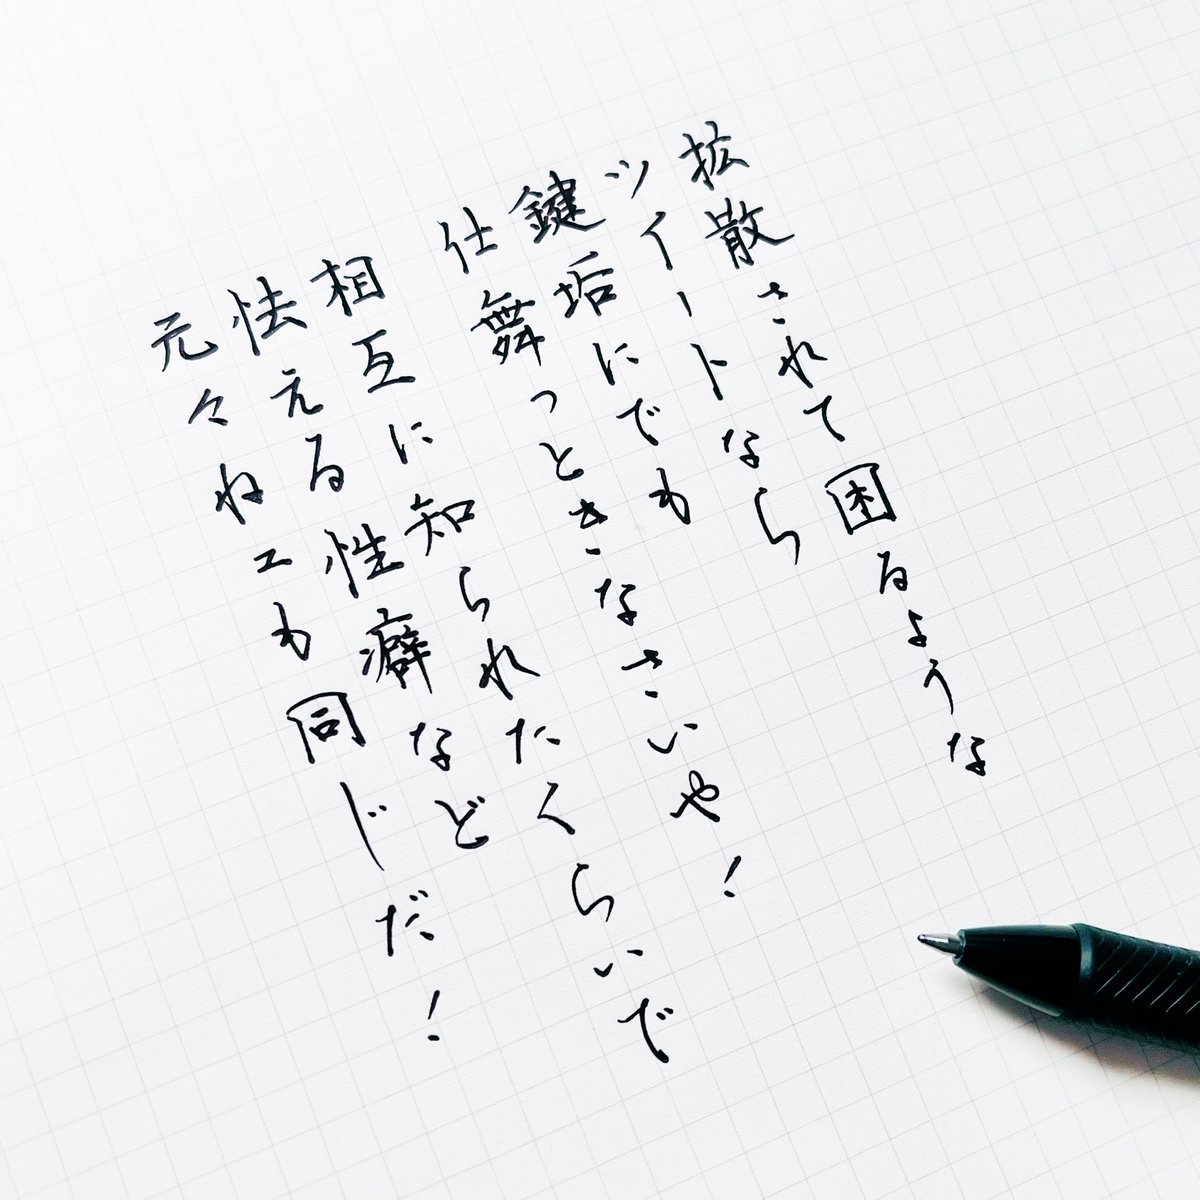 拡散されて困るような
ツイートなら
鍵垢にでも
仕舞っときなさいや!
相互に知られたくらいで
怯える性癖など
元々ねェも同ドだ!